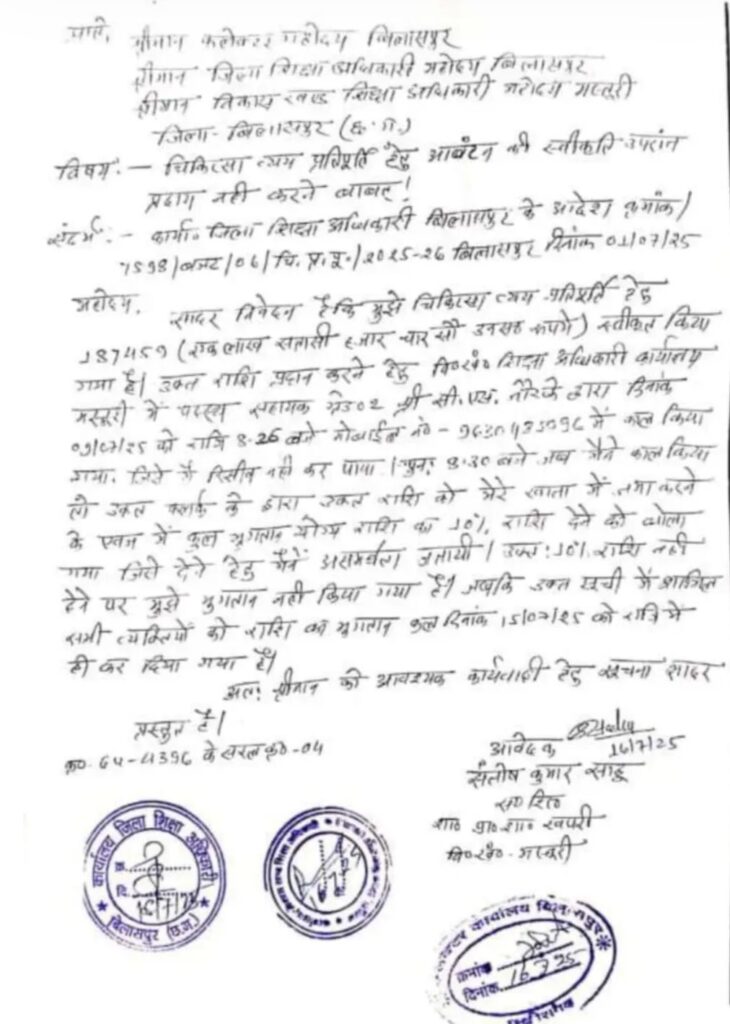 प्रति,
श्रीमान कलेक्टर महोदय बिलासपुर
श्रीमान जिला शिक्षा अधिकारी महोदय बिलासपुर
श्रीमान विकास खण्ड शिक्षा अधिकारी महोदय मस्तूरी
जिला-बिलासपुर (छ.ग.)
विषय:- चिकित्सा व्यय प्रतिपूर्ति हेतु आबंटन की स्वीकृति उपरांत
प्रदाय नही करने बाबत!
संदर्भ:- कार्या. जिला शिक्षा अधिकारी बिलासपुर के आदेश क्रमांक/
7598/बजट/06/चि.प्र.पू./2025-26 बिलासपुर दिनांक 01/07/25
महोदय,
सादर निवेदन है कि मुझे चिकित्सा व्यय प्रतिपूर्ति हेतु
187459 (एक लाख सतासी हजार चार सौ उनसठ रूपये) स्वीकृत किया
गया है। उक्त राशि प्रदान करने हेतु वि०खं० शिक्षा अधिकारी कार्यालय
मस्तूरी में पदस्थ सहायक ग्रेड 02 श्री सी.एस. नौरके द्वारा दिनांक
09/07/25 को रात्रि 8:26 बजे मोबाईल नं०- में काल किया
गया. जिसे मैं रिसीव नही कर पाया। पुन: 8:30 बजे जब मैंने काल किया
तो उक्त क्लर्क के द्वारा उक्त राशि को मेरे खाता में जमा करने
के एवज में कुल भुगतान योग्य राशि का 10% राशि देने को बोला
गया जिसे देने हेतु मैंने असमर्थता जतायी। उक्त: 10% राशि नही
देने पर मुझे भुगतान नही किया गया है। जबकि उक्त सूची में शामिल
सभी व्यक्तियों को राशि का भुगतान कल दिनांक 15/07/25 को रात्रि में
ही कर दिया गया है।
अत: श्रीमान को आवश्यक कार्यवाही हेतु सूचना सादर
प्रस्तुत है।
क्र०. 64-4396 के सरल क्र०-04
16/7/25
आवेदक
संतोष कुमार साहू
स० शि०
शा० प्रा० शा० खपरी
वि०खं०- मस्तूरी
कार्यालय जिला शिक्षा अधिकारी
क्र.
दि. 16/7/25
बिलासपुर (छ.ग.)
कलेक्टर कार्यालय बिलासपुर
क्रमांक
दिनांक 16.7.25